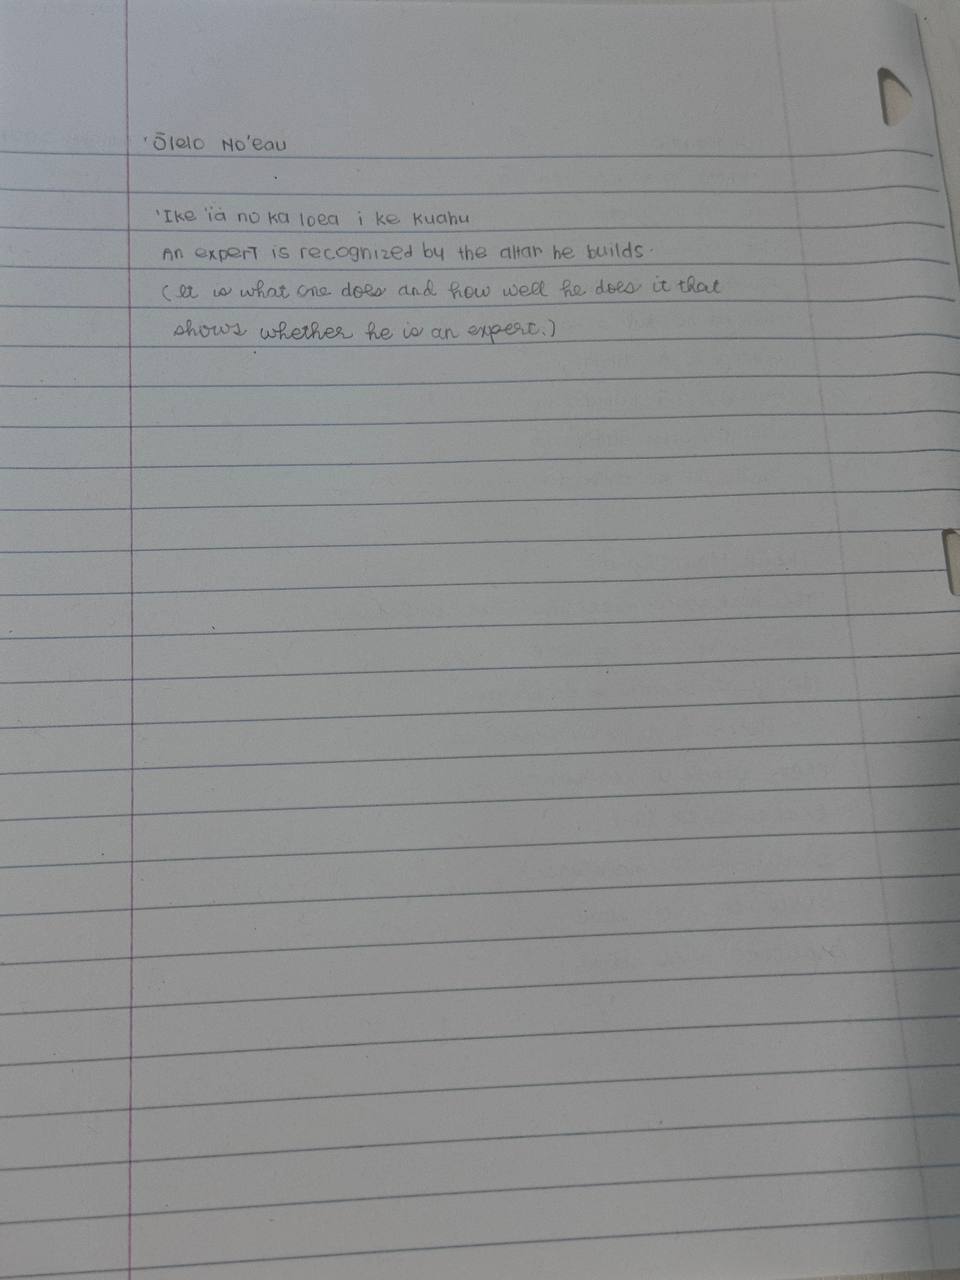 'Ōlelo No'eau
'Ike 'ia no ka loea i ke kuahu
An expert is recognized by the altar he builds.
(It is what one does and how well he does it that
shows whether he is an expert.)